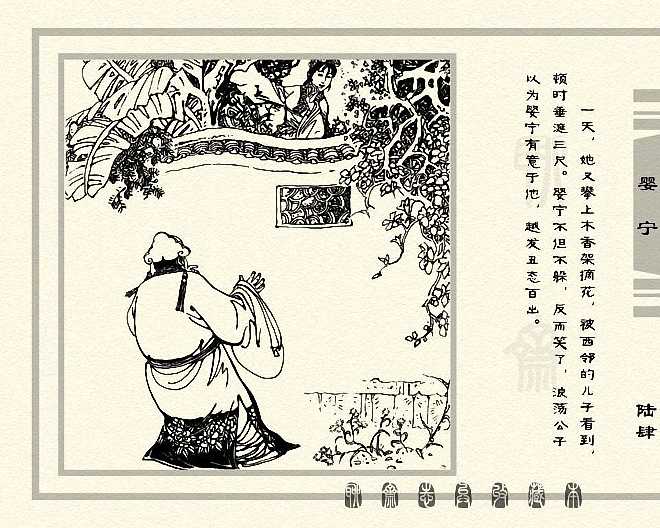 一天，她又攀上木香架摘花，被西邻的儿子看到，
顿时垂涎三尺。婴宁不但不躲，反而笑了，浪荡公子
以为婴宁有意于他，越发丑态百出。
婴宁
陆肆